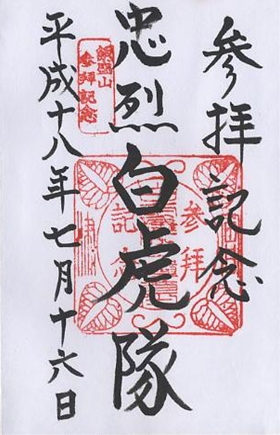 参拝記念
忠烈白虎隊
飯盛山
参拝記念
平成十八年七月十六日
参拝
記念